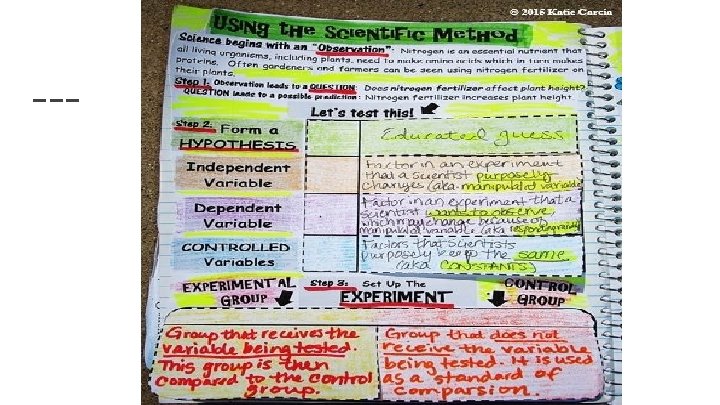 © 2015 Katie Garcia
USING tHE SciENtiFic MEtHOd
Science begins with an "Observation": Nitrogen is an essential nutrient that
all living organisms, including plants, need to make amino acids which in turn makes
proteins. Often gardeners and farmers can be seen using nitrogen fertilizer on
their plants.
Step 1: Observation leads to a QUESTION: Does nitrogen fertilizer affect plant height?
QUESTION leads to a possible prediction: Nitrogen fertilizer increases plant height.
Let's test this!
Step 2: Form a
HYPOTHESIS
Educated guess
Independent
Variable
Factor in an experiment
that a scientist purposely
changes (aka manipulated variable
Dependent
Variable
Factor in an experiment that a
scientist wants to observe,
which may change because of
manipulated variable (aka responding
CONTROLLED
Variables
Factors that scientists
purposely keep the same
(aka CONSTANTS)
EXPERIMENTAL
GROUP
Step 3: Set Up The
EXPERIMENT
CONTROL
GROUP
Group that receives the
variable being tested.
This group is then
compared to the control
group.
Group that does not
receive the variable
being tested. It is used
as a standard of
comparsion.